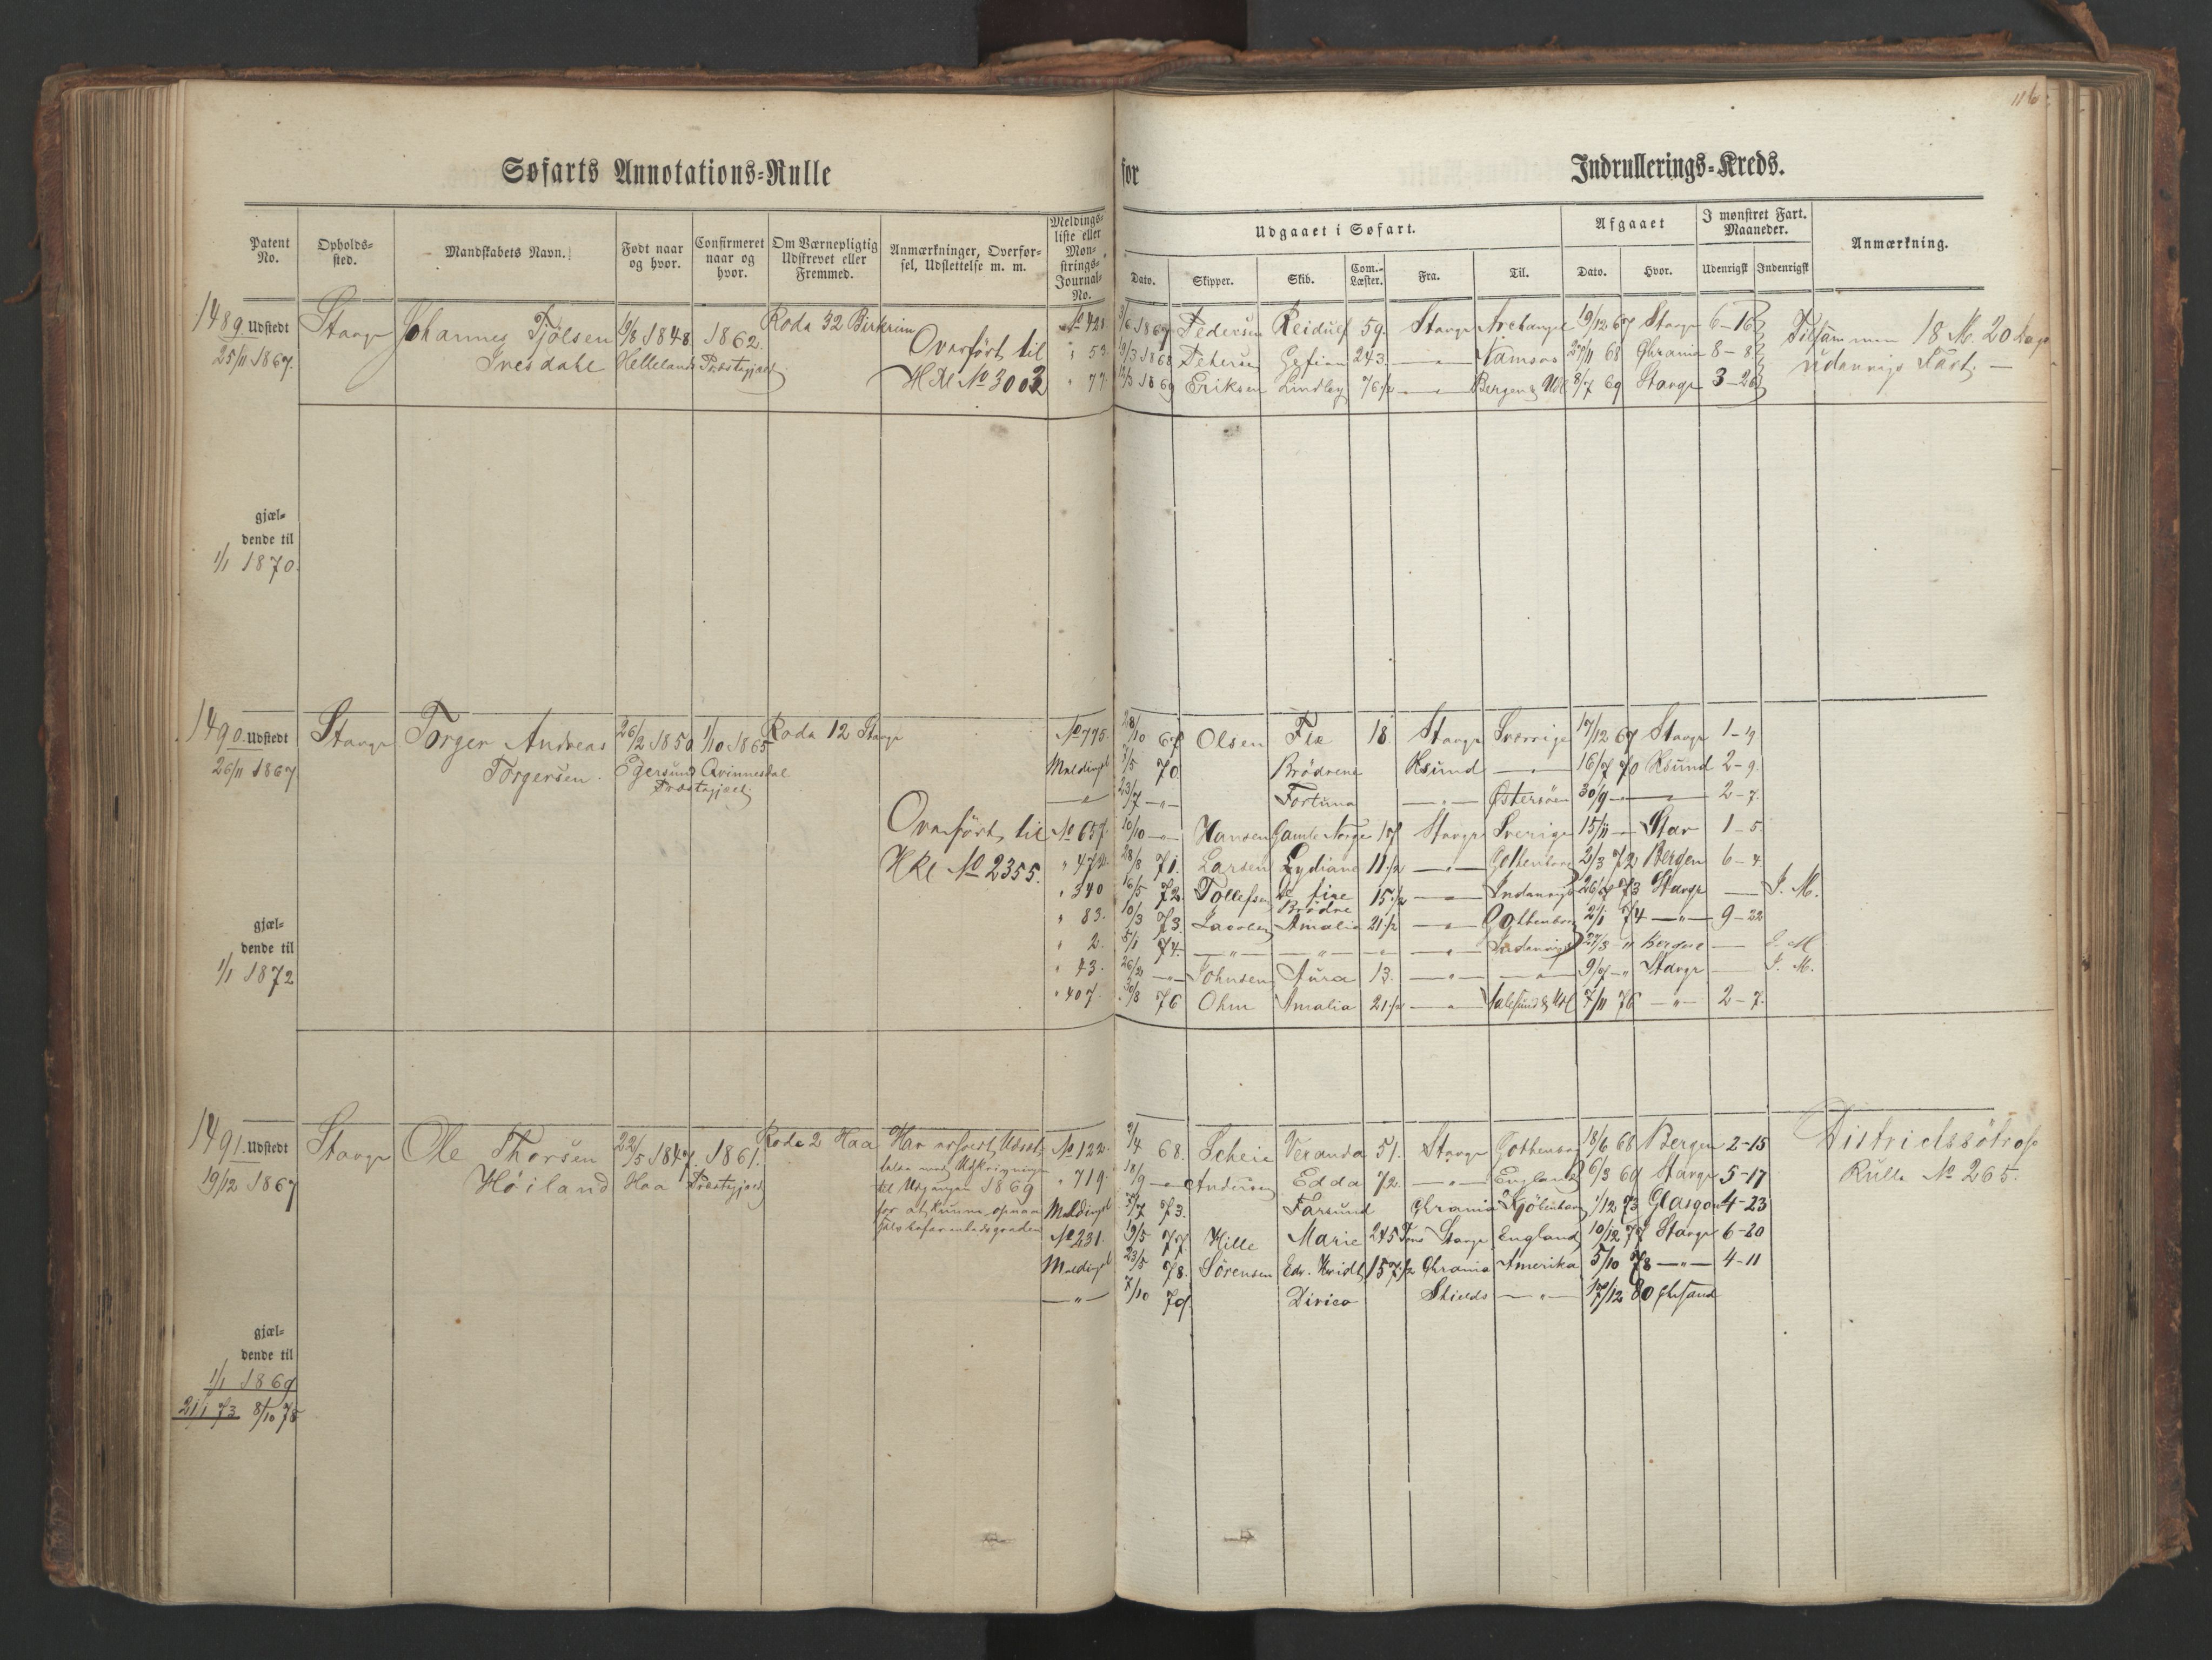 116
Søfarts Annotations-Rulle for Indrullerings-Kreds.
Patent No. Opholds-sted. Mandskabets Navn. Født naar og hvor. Confirmeret naar og hvor. Om Værnepligtig Udskrevet eller Fremmed. Anmærkninger, Overfør-sel, Udslettelse m. m. Meldings-liste eller Mon-strings-Journal-No.
Udgaaet i Søfart. Afgaaet I mønstret Fart. Maaneder. Anmærkning.
Dato. Skipper. Skib. Com.-Læster. Fra. Til. Dato. Hvor. Udenrigsk Indenrigsk
1489. Udstedt Stavgr Johannes Tjölsen 19/8 1848 1862. Roda 32 Birkrim № 428 Pedersen Reidulf 59. Stavgr Archangel 19/12 67 Stavgr 6-16
25/11 1867. Ivesdahl Hellelands Præstegjæld Overført til " 53 19/3 1868 Petersen Gefion 243. —"— Namsos 27/11 68 Chrania 8-8 Tilsammen 18 M. 20 Dage
HRl № 3003 " 77 1869 Eriksen Lindley 76½ —"— Bergen & Udl 8/7 69 Stavgr 3-26 udenrigs Fart. —
gjæl-
dende til
1/1 1870.
1490. Udstedt Stavgr Torger Andreas 26/2 1850 1/10 1865 Roda 12 Stavgr № 775. 28/10 67 Olsen Fix 18 Stavgr Sverrige 17/12 67 Stavgr 1-19
26/11 1867 Torgersen. Egersund Qvinnesdal Meldingsl 7/5 70. Brödrene Rsund —"— 16/7 70 Rsund 2-9.
Præstegjæld —"— 23/7 —"— Fortuna —"— Østersöen 30/9 —"— —"— 2-7.
Overført til № 657. 10/10 —"— Hansen Gamle Norge 17 Stavgr Sverige 15/11 —"— Stav 1-5.
HRl № 2355. " 472. 28/8 71. Larsen Lydiane 11½ —"— Gothenborg 2/3 72 Bergen 6-4
" 340 16/5 72. Tollefsen De fire Brödre 15½ —"— Indenrigs 26/ 73 Stavgr — I. M.
" 83. 10/3 73. Jacobsen Amalia 21½ —"— Gothenborg 2/1 74 —"— 9-22
gjæl-
dende til
1/1 1872
" 2. 5/1 74. —"— —"— —"— —"— Indenrigs 27/3 " Bergen — I. M
" 43. 26/2 —"— Johnsen Aura 13. —"— —"— 9/ —"— Stavgr — I. M.
" 407. 30/8 76 Ohm Amalia 21½ —"— Aalesund & Udl 7/11 76 —"— 2-7.
1491. Udstedt Stavgr Ole Thorsen 22/5 1847. 1861. Roda 2 Haa Har erholdt Udsæt № 122. 2/4 68. Scheie Veranda 51. Stavgr Gothenborg 18/6 68 Bergen 2-15 Districtssötrop
19/12 1867 Höiland Haa Præstegjæld telse med Udskrivningen " 719. 18/9 —"— Andersen Edda 72. —"— England 6/3 69 Stavgr 5-17 Rulle № 265.
til Udgangen 1869 Meldingsl 7/7 73. Farsund Chrania Kjöbenhavn 1/12 73 Glasgow 4-23
for at kunne opnaa
№ 231. 19/5 77. Hille Marie 245 Tons Stavgr England 10/12 77 Stavgr 6-20
Meldingsl 23/5 78. Sörensen Edv. Hvidt 157½ Chrania Amerika 5/10 78 —"— 4-11
—"— 7/10 79. Dirico Shields —"— 17/12 80 Chrsand
gjæl-
dende til
1/1 1869
21/1 73 8/10 78